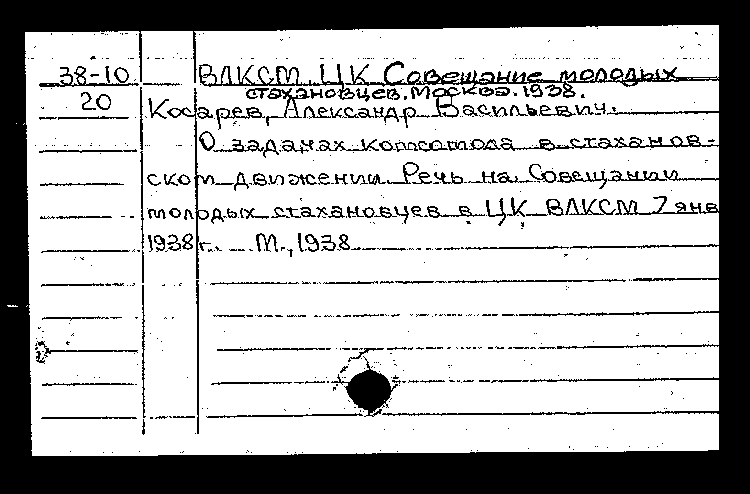 38-10 ВЛКСМ. ЦК Совещание молодых
стахановцев. Москва. 1938.
20 Косарев, Александр Васильевич.
О задачах комсомола в стаханов-
ском движении. Речь на Совещании
молодых стахановцев в ЦК ВЛКСМ 7 янв
1938 г. М., 1938